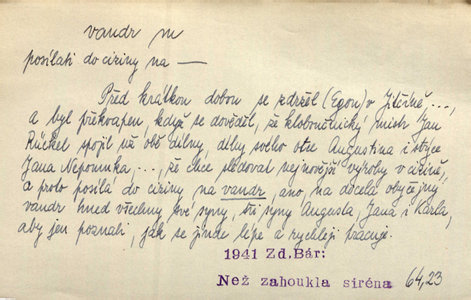 vandr m
posílati do ciziny na —
Před krátkou dobou se zdržel (Egon) v Jitčíně ...,
a byl překvapen, když se dověděl, že kloboučnický mistr Jan
Rückel spojil už obě dílny, dílny svého otce Augustina i strýce
Jana Nepomuka ..., že chce sledovat nejnovější výroby v cizině,
a proto posílá do ciziny na vandr, ano, na docela obyčejný
vandr hned všechny své syny, tři syny Augusta, Jana i Karla,
aby jen poznali, jak se jinde lépe a rychleji pracuje.
1941 Zd.Bár:
Než zahoukla siréna 64,23